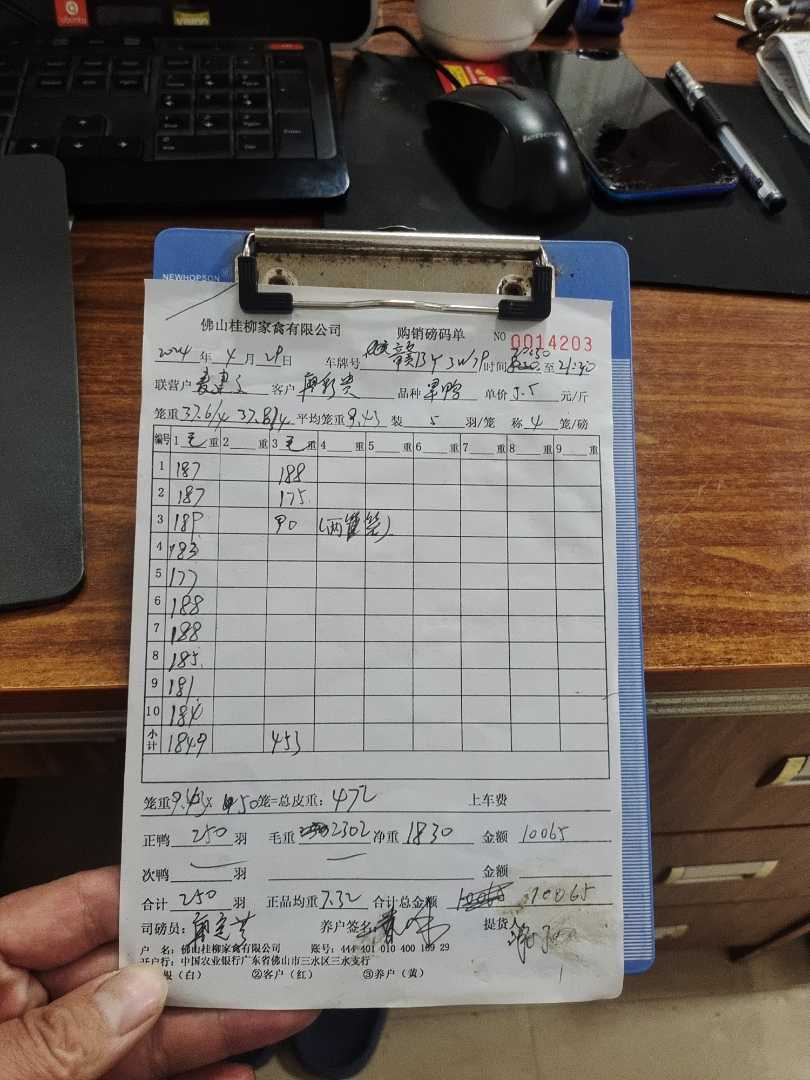 ubuntu
Lenovo
NEWHOPSON
佛山桂柳家禽有限公司 购销磅码单 NO 0014203
2024 年 4 月 29 日 车牌号 时间 至 21:40
联营户 客户 品种 单价 5.5 元/斤
笼重 37.6/4 37.8/4 平均笼重 9.43 装 5 羽/笼 称 4 笼/磅
编号 1 毛 重 2 重 3 毛 重 4 重 5 重 6 重 7 重 8 重 9 重
1 187 188
2 187 175
3 189 90 (两笼)
4 183
5 177
6 188
7 188
8 185
9 181
10 184
小计 1849 453
笼重 9.43 × 50 笼=总皮重: 472 上车费
正鸭 250 羽 毛重 2302 净重 1830 金额 10065
次鸭 羽 金额
合计 250 羽 正品均重 7.32 合计总金额 10065
司磅员: 养户签名 提货人
户 名: 佛山桂柳家禽有限公司 账号: 444 401 010 400 189 29
开户行: 中国农业银行广东省佛山市三水区三水支行
(白) ②客户(红) ③养户(黄)